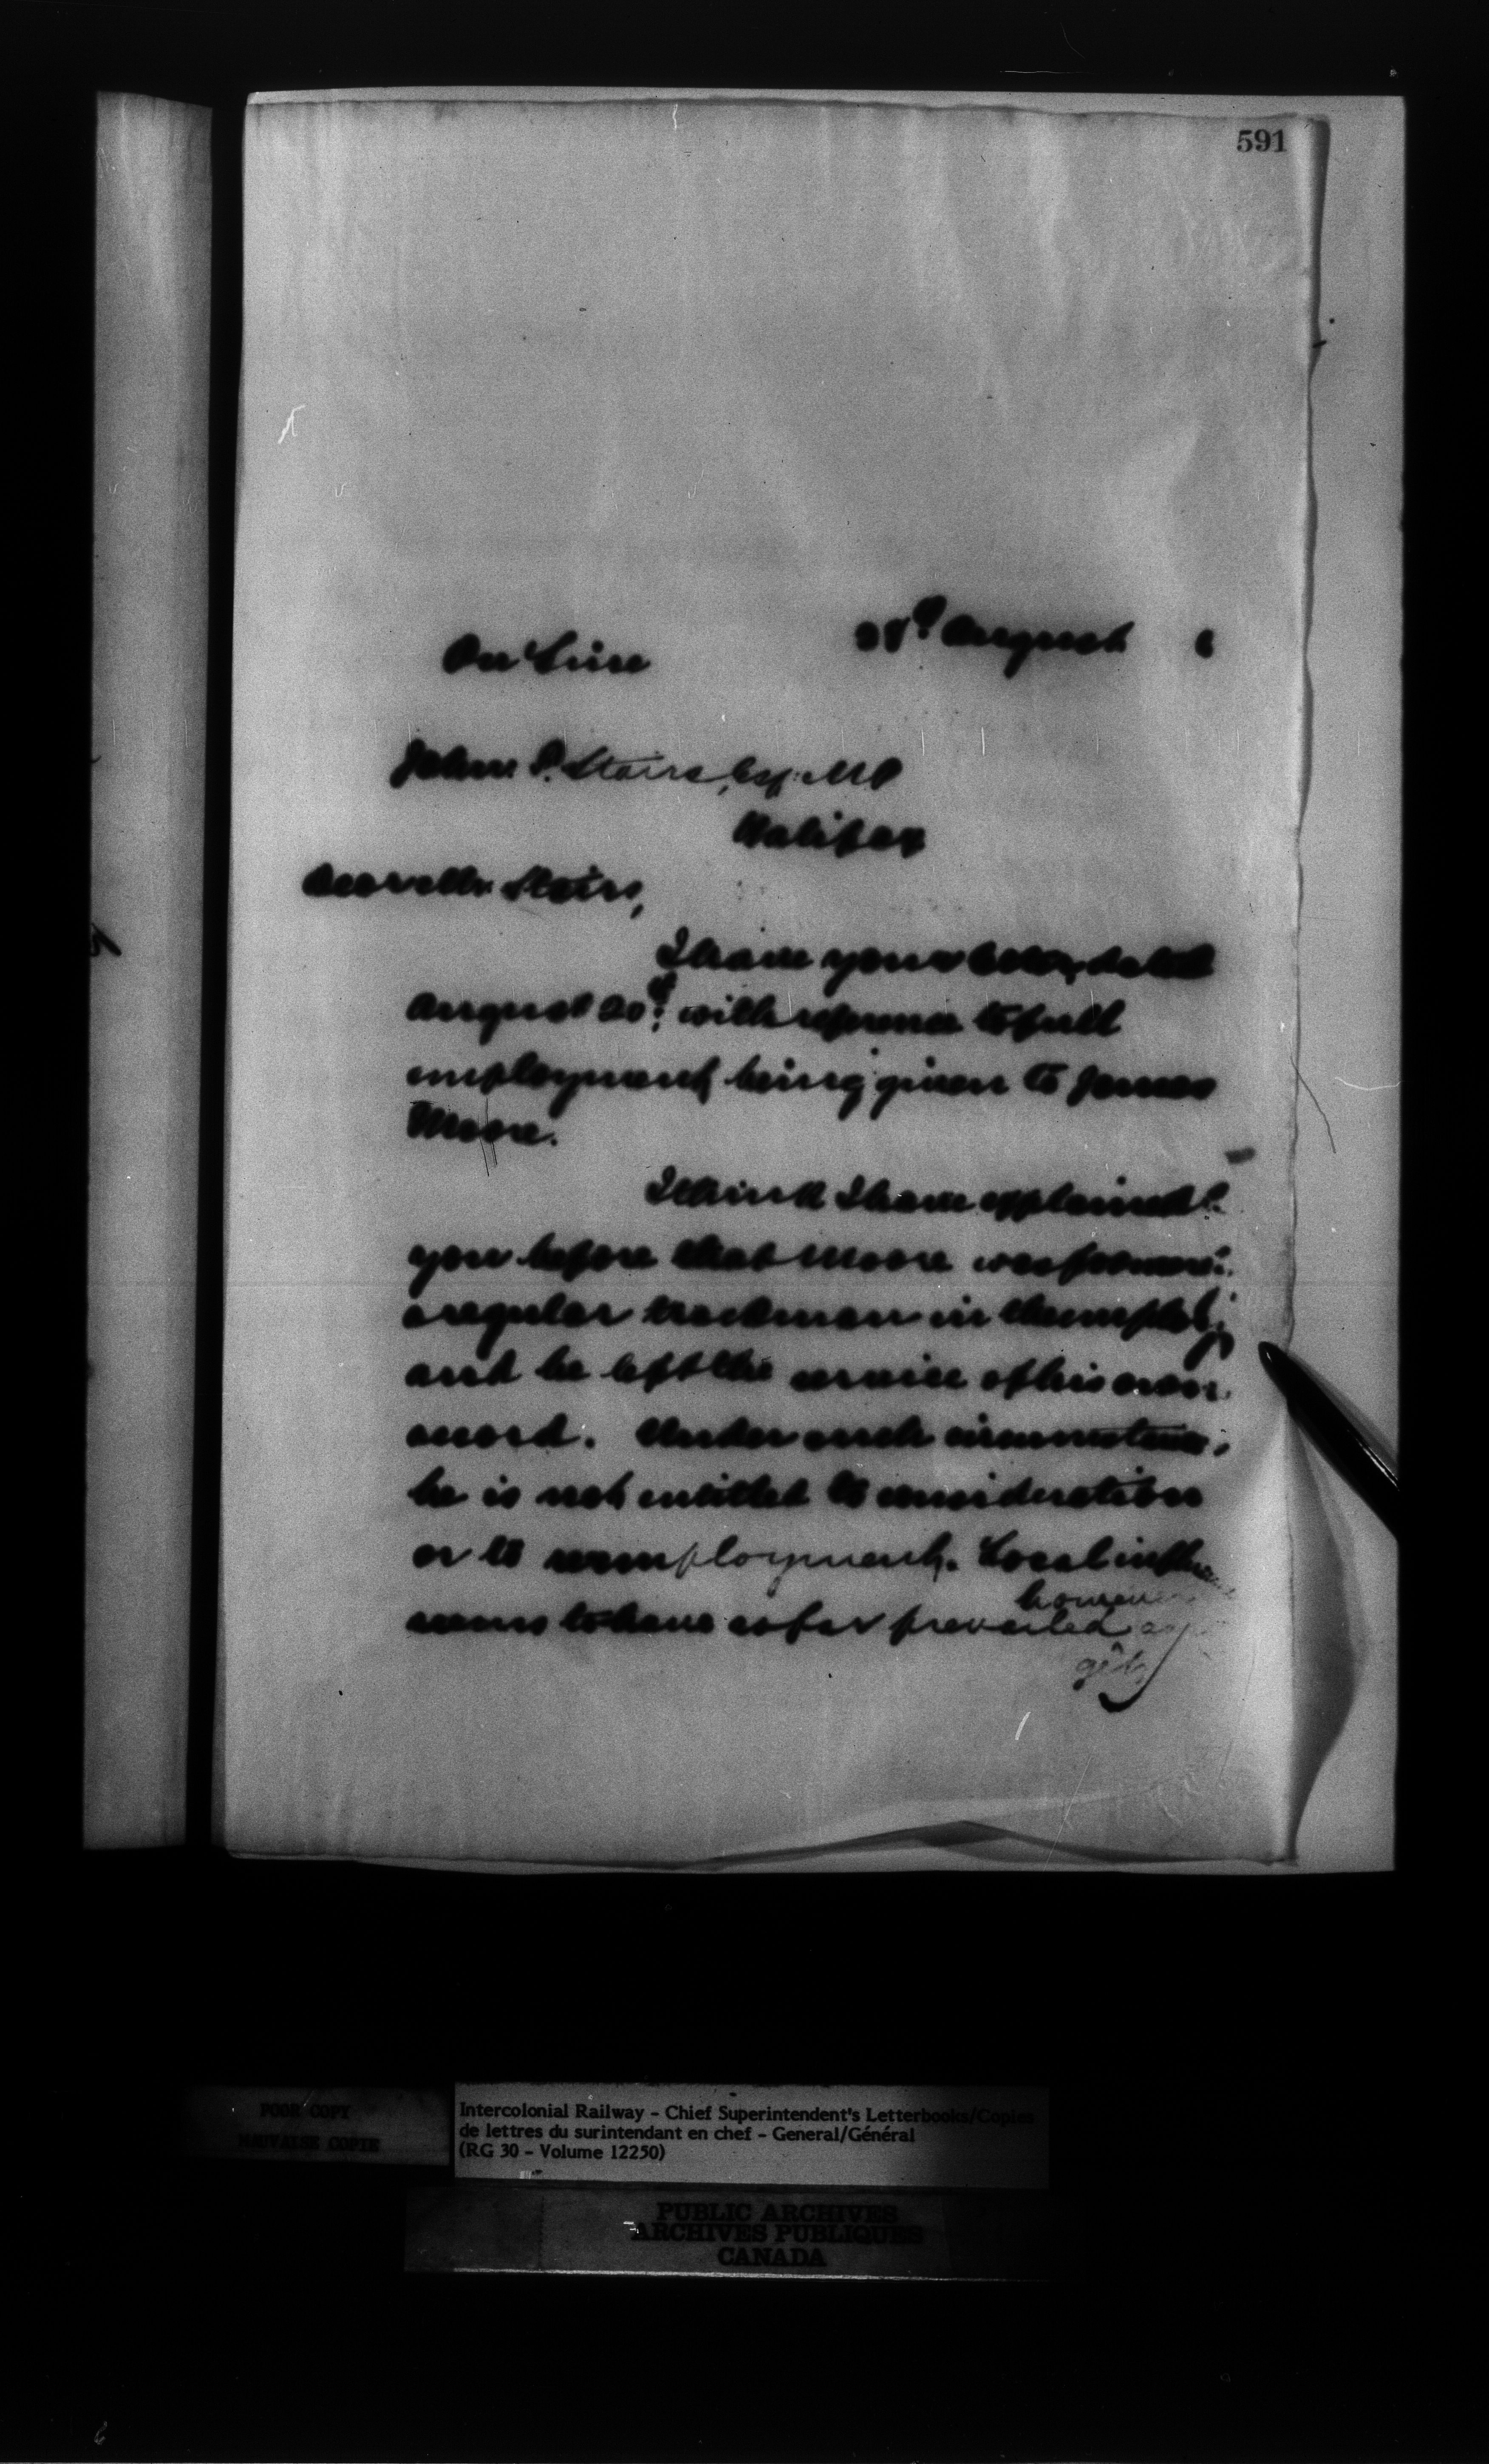 591
On Line 28th August 6
John F. Stairs, Esq. MP
Halifax
Dear Mr. Stairs,
I have your letter, dated
August 20th, with reference to full
employment being given to James
Moore.
I think I have explained
you before that Moore was
a regular trackman in the employ
and he left the service of his own
accord. Under such
he is not entitled to consideration
or to reemployment. Local
however
seems to have so far prevailed as
get
POOR COPY
MAUVAISE COPIE
Intercolonial Railway - Chief Superintendent's Letterbooks/Copies
de lettres du surintendant en chef - General/Général
(RG 30 - Volume 12250)
PUBLIC ARCHIVES
ARCHIVES PUBLIQUES
CANADA